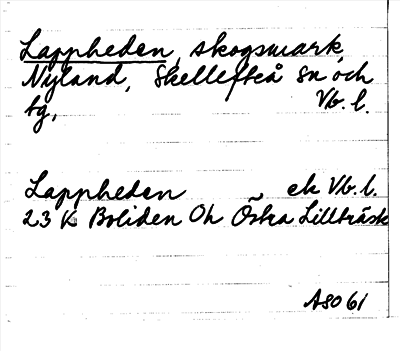 Lappheden, skogsmark,
Nyland, Skellefteå sn och
tg, Vb. l.
Lappheden ek Vb. l.
23 K Boliden Oh Östra Lillträsk
A8061